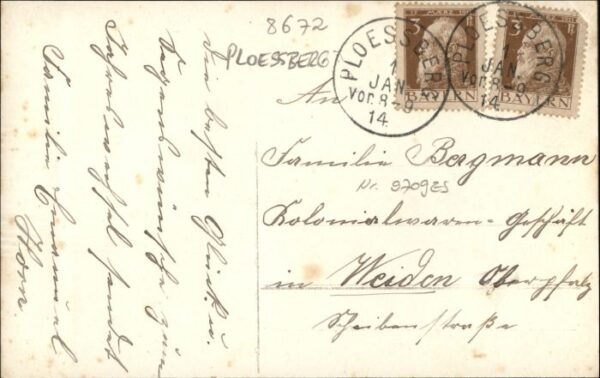 8672
PLOESSBERG
Die besten Glück- u.
Segenswünsche zum
Jahreswechsel sendet
Familie Emanuel
Horn
PLOESSBERG
1. JAN.
Vor. 8-9
14.
PLOESSBERG
1. JAN.
Vor. 8-9
14.
3 PF
BAYERN
3 PF
BAYERN
An
Familie Bergmann
Nr.
Kolonialwaren-Geschäft
in Weiden Oberpfalz
Scheibenstraße